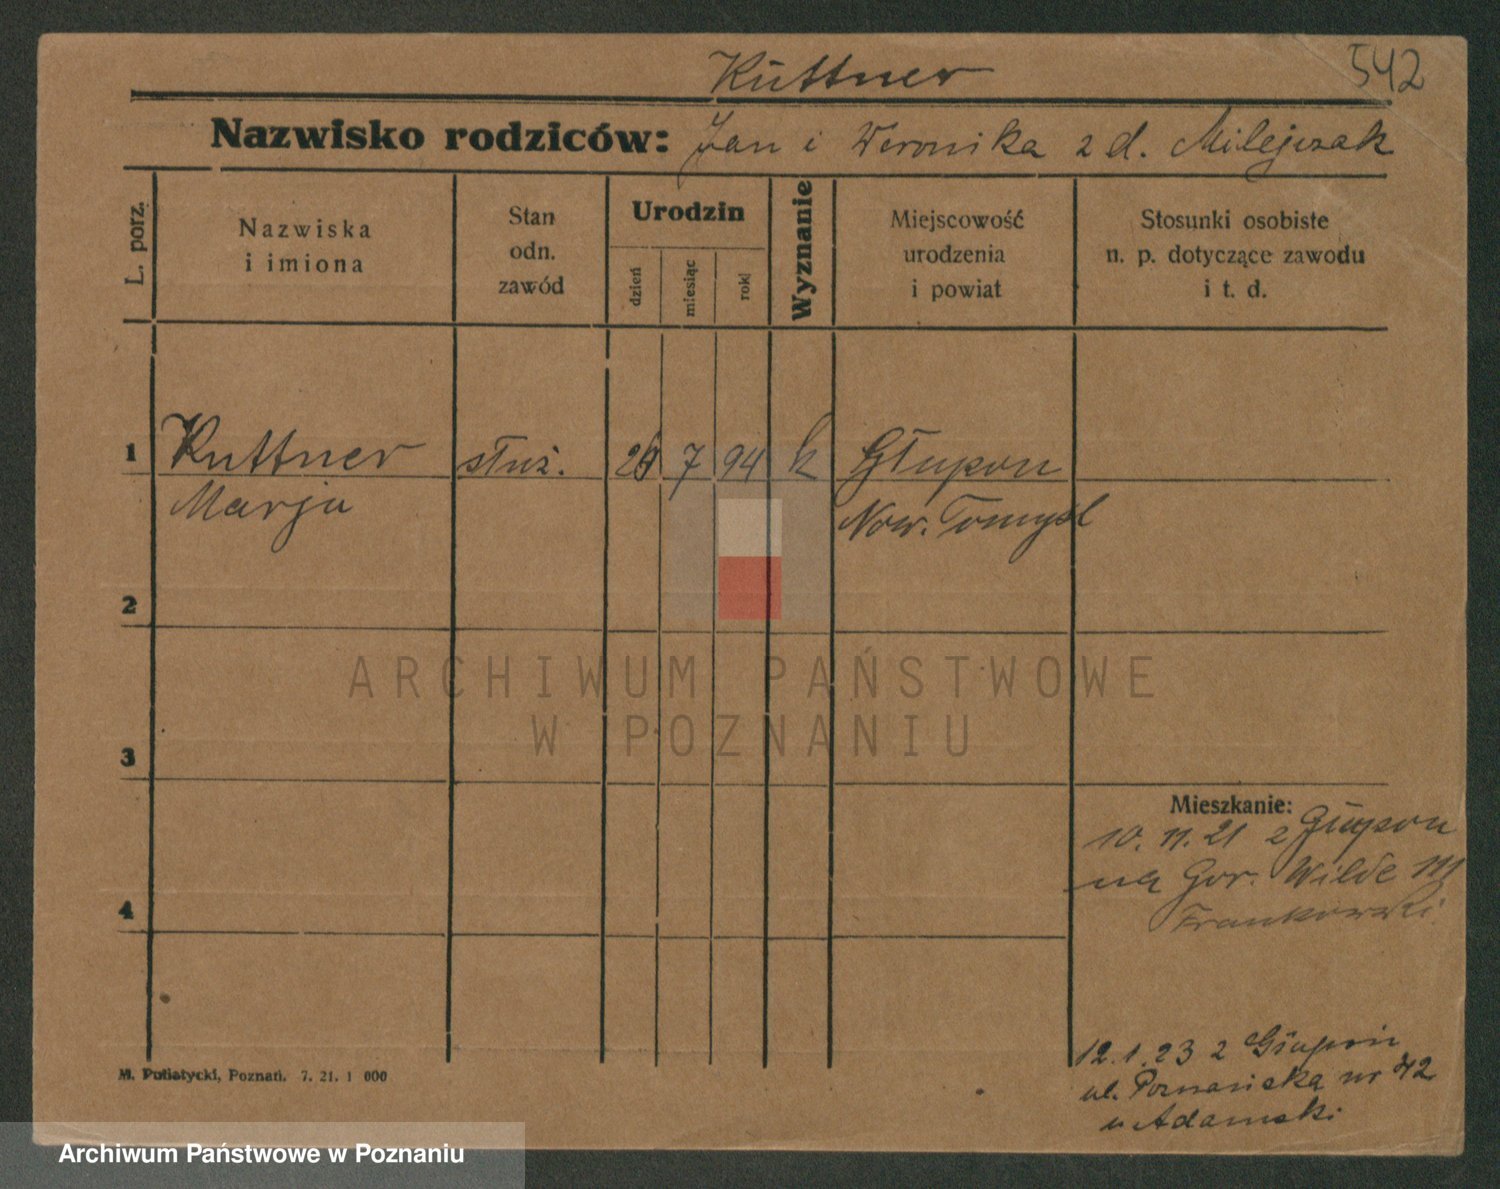 Kuttner
542
Nazwisko rodziców: Jan i Weronika z d. Milejczak
L. porz.
Nazwiska
i imiona
Stan
odn.
zawód
Urodzin
dzień
miesiąc
rok
Wyznanie
Miejscowość
urodzenia
i powiat
Stosunki osobiste
n. p. dotyczące zawodu
i t. d.
1 Kuttner służ. 7 94 k Głupon
Marja Now. Tomysl
2
ARCHIWUM PAŃSTWOWE
W POZNANIU
3
Mieszkanie:
10. 11. 21 z Głupon
na Gor. Wilde 111
Frankowski
4
12. 1. 23 z Głupoń
ul. Poznańska nr 42
u Adamski
M. Putiatycki, Poznań. 7. 21. 1 000
Archiwum Państwowe w Poznaniu